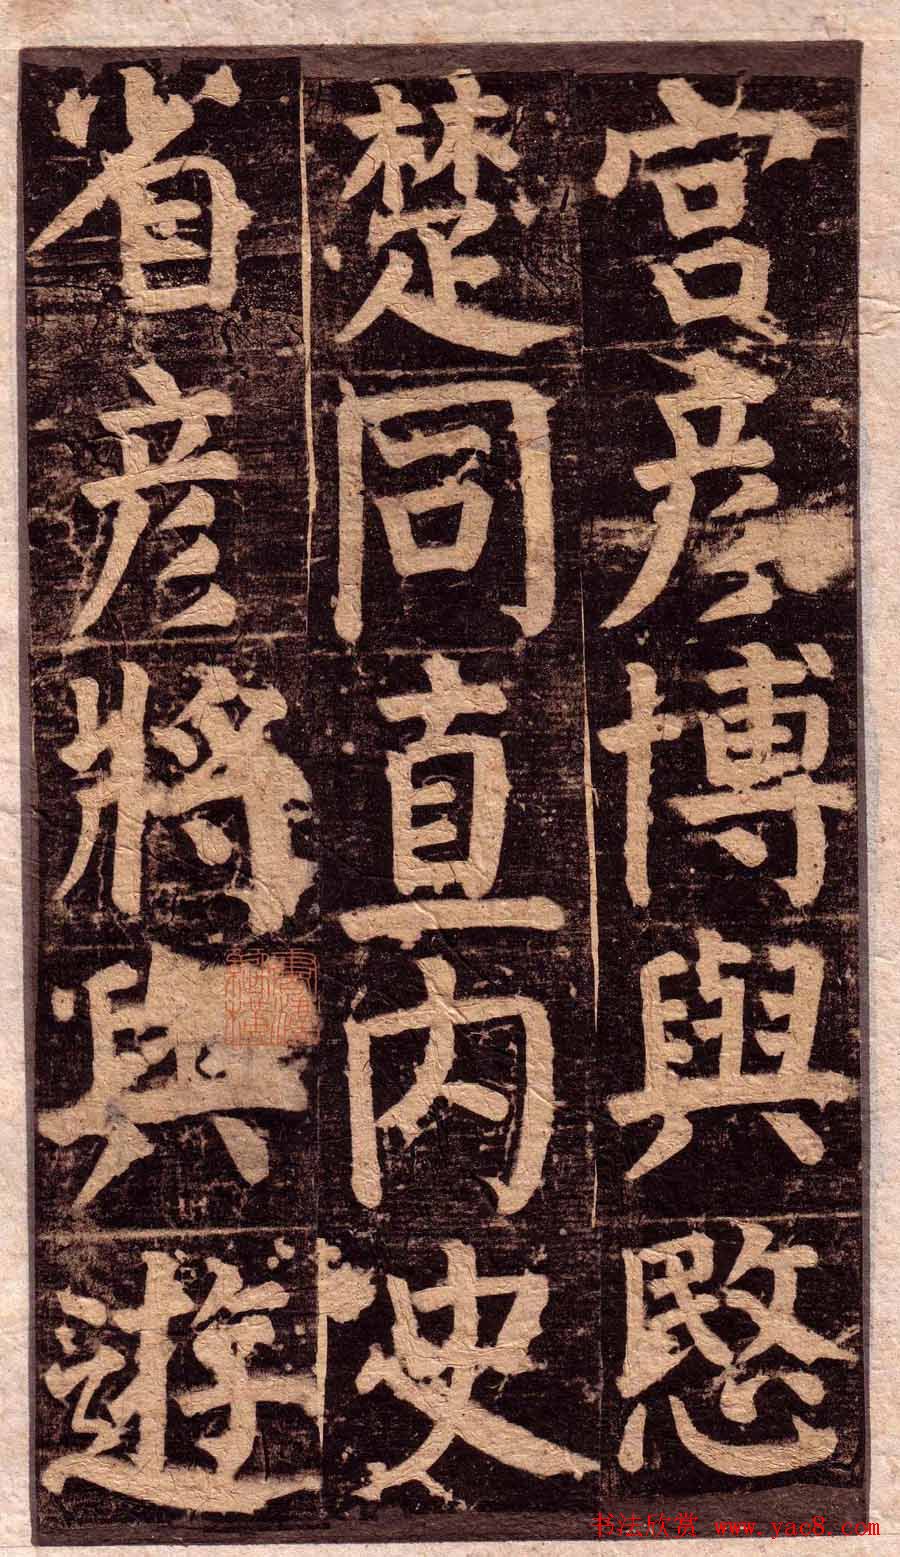 宫彦博與愍
楚同直内史
省彦將與遊
书法欣赏 www.yac8.com